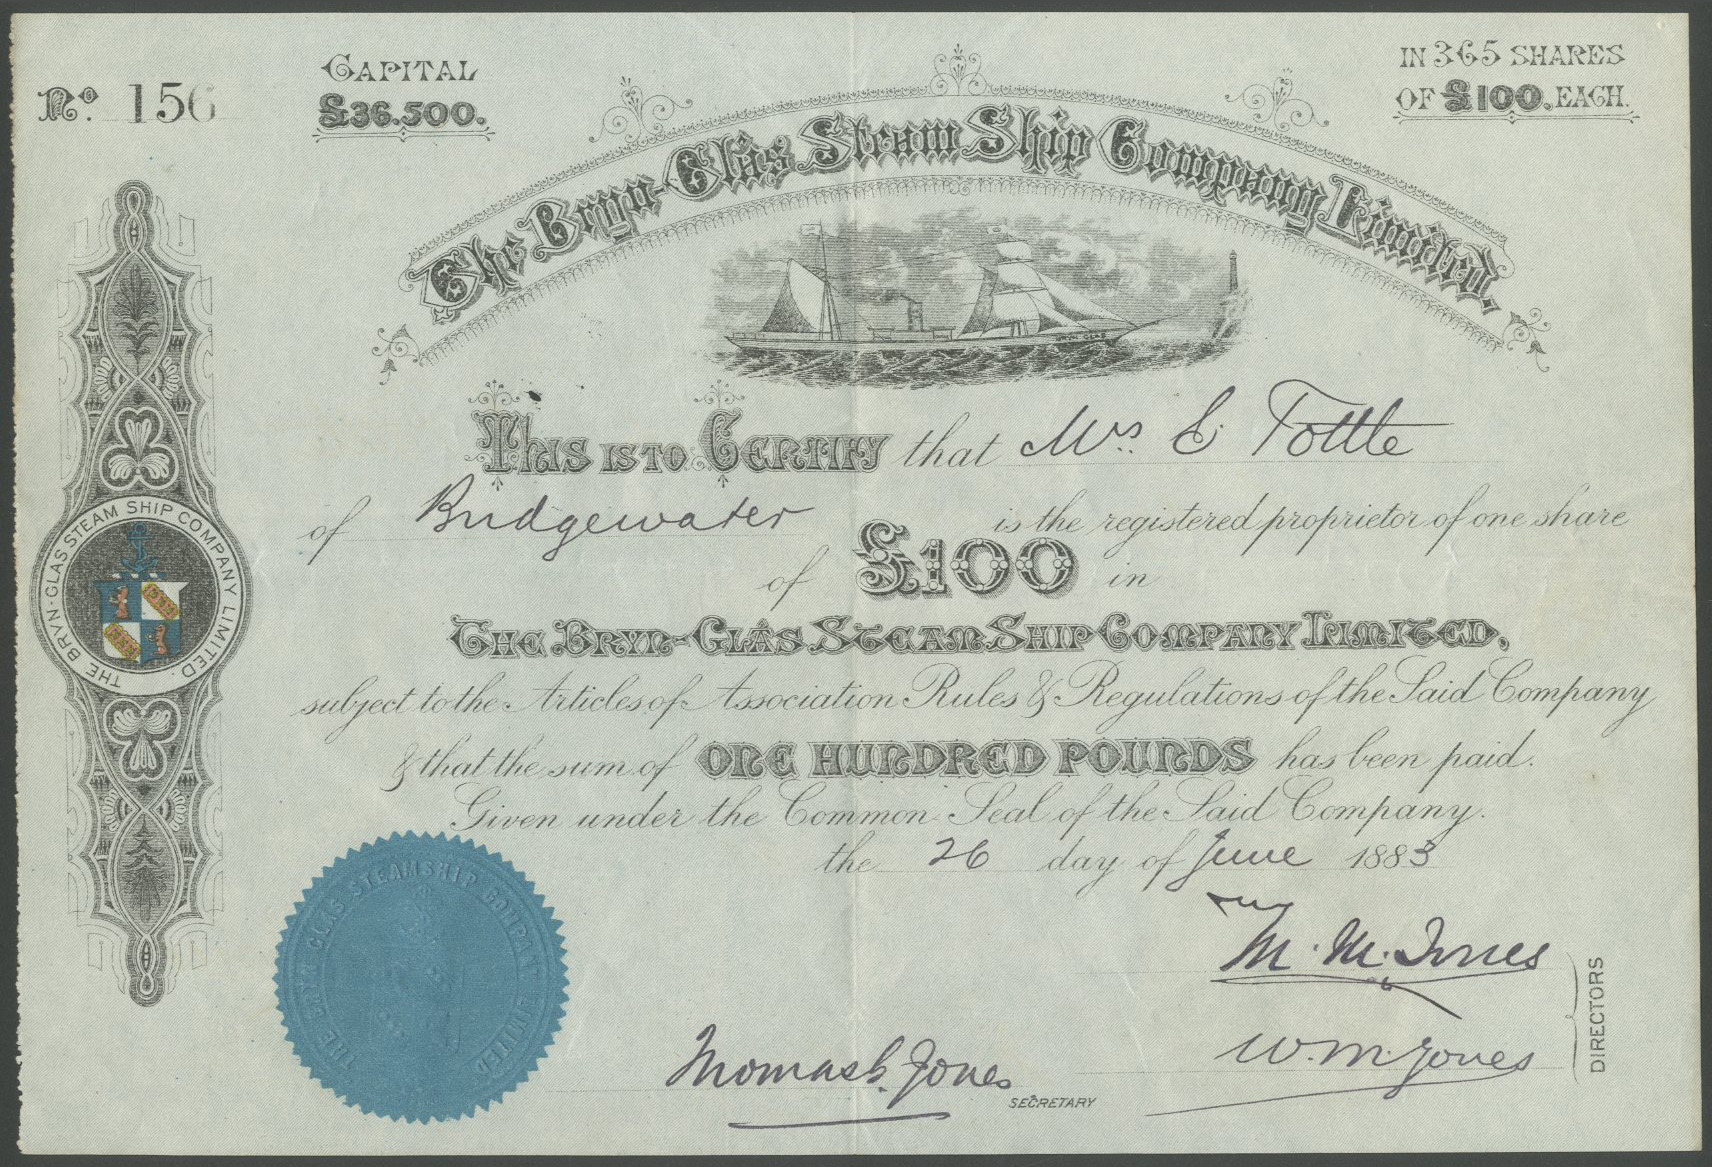 No. 156
CAPITAL
£36.500.
IN 365 SHARES
OF £100. EACH.
The Bryn-Glâs Steam Ship Company Limited.
BRYN GLAS
THIS IS TO CERTIFY that Mrs. E Tottle
of Bridgewater is the registered proprietor of one share
of £100 in
THE BRYN-GLÂS STEAM SHIP COMPANY LIMITED,
subject to the Articles of Association Rules & Regulations of the Said Company
& that the sum of ONE HUNDRED POUNDS has been paid.
Given under the Common Seal of the Said Company.
the 26 day of June 1883
M. M. Jones
W. M. Jones
DIRECTORS
Thomas Jones
SECRETARY
THE BRYN-GLAS STEAM SHIP COMPANY LIMITED.
THE BRYN GLAS STEAMSHIP COMPANY LIMITED